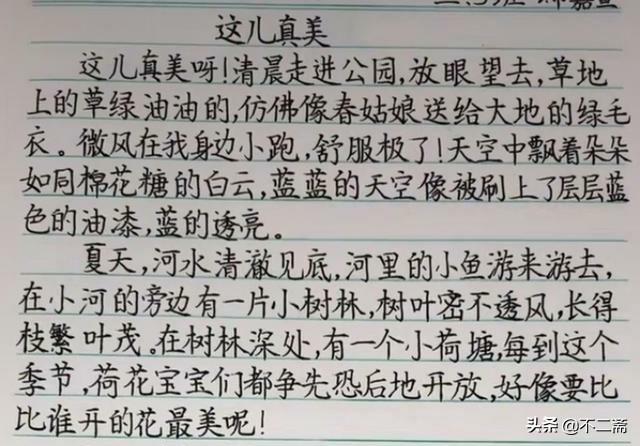 这儿真美
这儿真美呀!清晨走进公园,放眼望去,草地
上的草绿油油的,仿佛像春姑娘送给大地的绿毛
衣。微风在我身边小跑,舒服极了!天空中飘着朵朵
如同棉花糖的白云,蓝蓝的天空像被刷上了层层蓝
色的油漆,蓝的透亮。
夏天,河水清澈见底,河里的小鱼游来游去,
在小河的旁边有一片小树林,树叶密不透风,长得
枝繁叶茂。在树林深处,有一个小荷塘,每到这个
季节,荷花宝宝们都争先恐后地开放,好像要比
比谁开的花最美呢!
头条 @不二斋